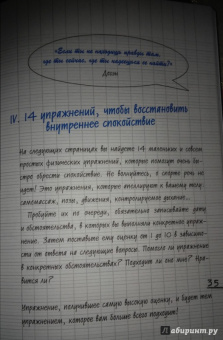 «Если ты не находишь правду там,
где ты сейчас, где ты надеешься ее найти?»
Догэн
IV. 14 упражнений, чтобы восстановить
внутреннее спокойствие
На следующих страницах вы найдете 14 маленьких и совсем
простых физических упражнений, которые помогут очень бы-
стро обрести спокойствие. Не волнуйтесь, о спорте речь не
идет! Это упражнения, которые апеллируют к вашему телу:
самомассаж, позы, движения, контролируемое дыхание...
Пробуйте их по очереди, обязательно записывайте дату
и обстоятельства, в которых вы выполнили конкретное упраж-
нение. Затем поставьте ему оценку от 1 до 10 в зависимо-
сти от ответа на следующие вопросы. Помогло ли упражнение
в конкретных обстоятельствах? Подходит ли оно мне? Нра-
вится ли?
Упражнение, получившее самую высокую оценку, и будет тем
упражнением, которое вам больше всего подходит!
95
Лабиринт.ру